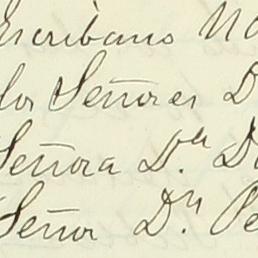 escribano No
los Señores D
Señora D.ª Do
Señor D.n Pe